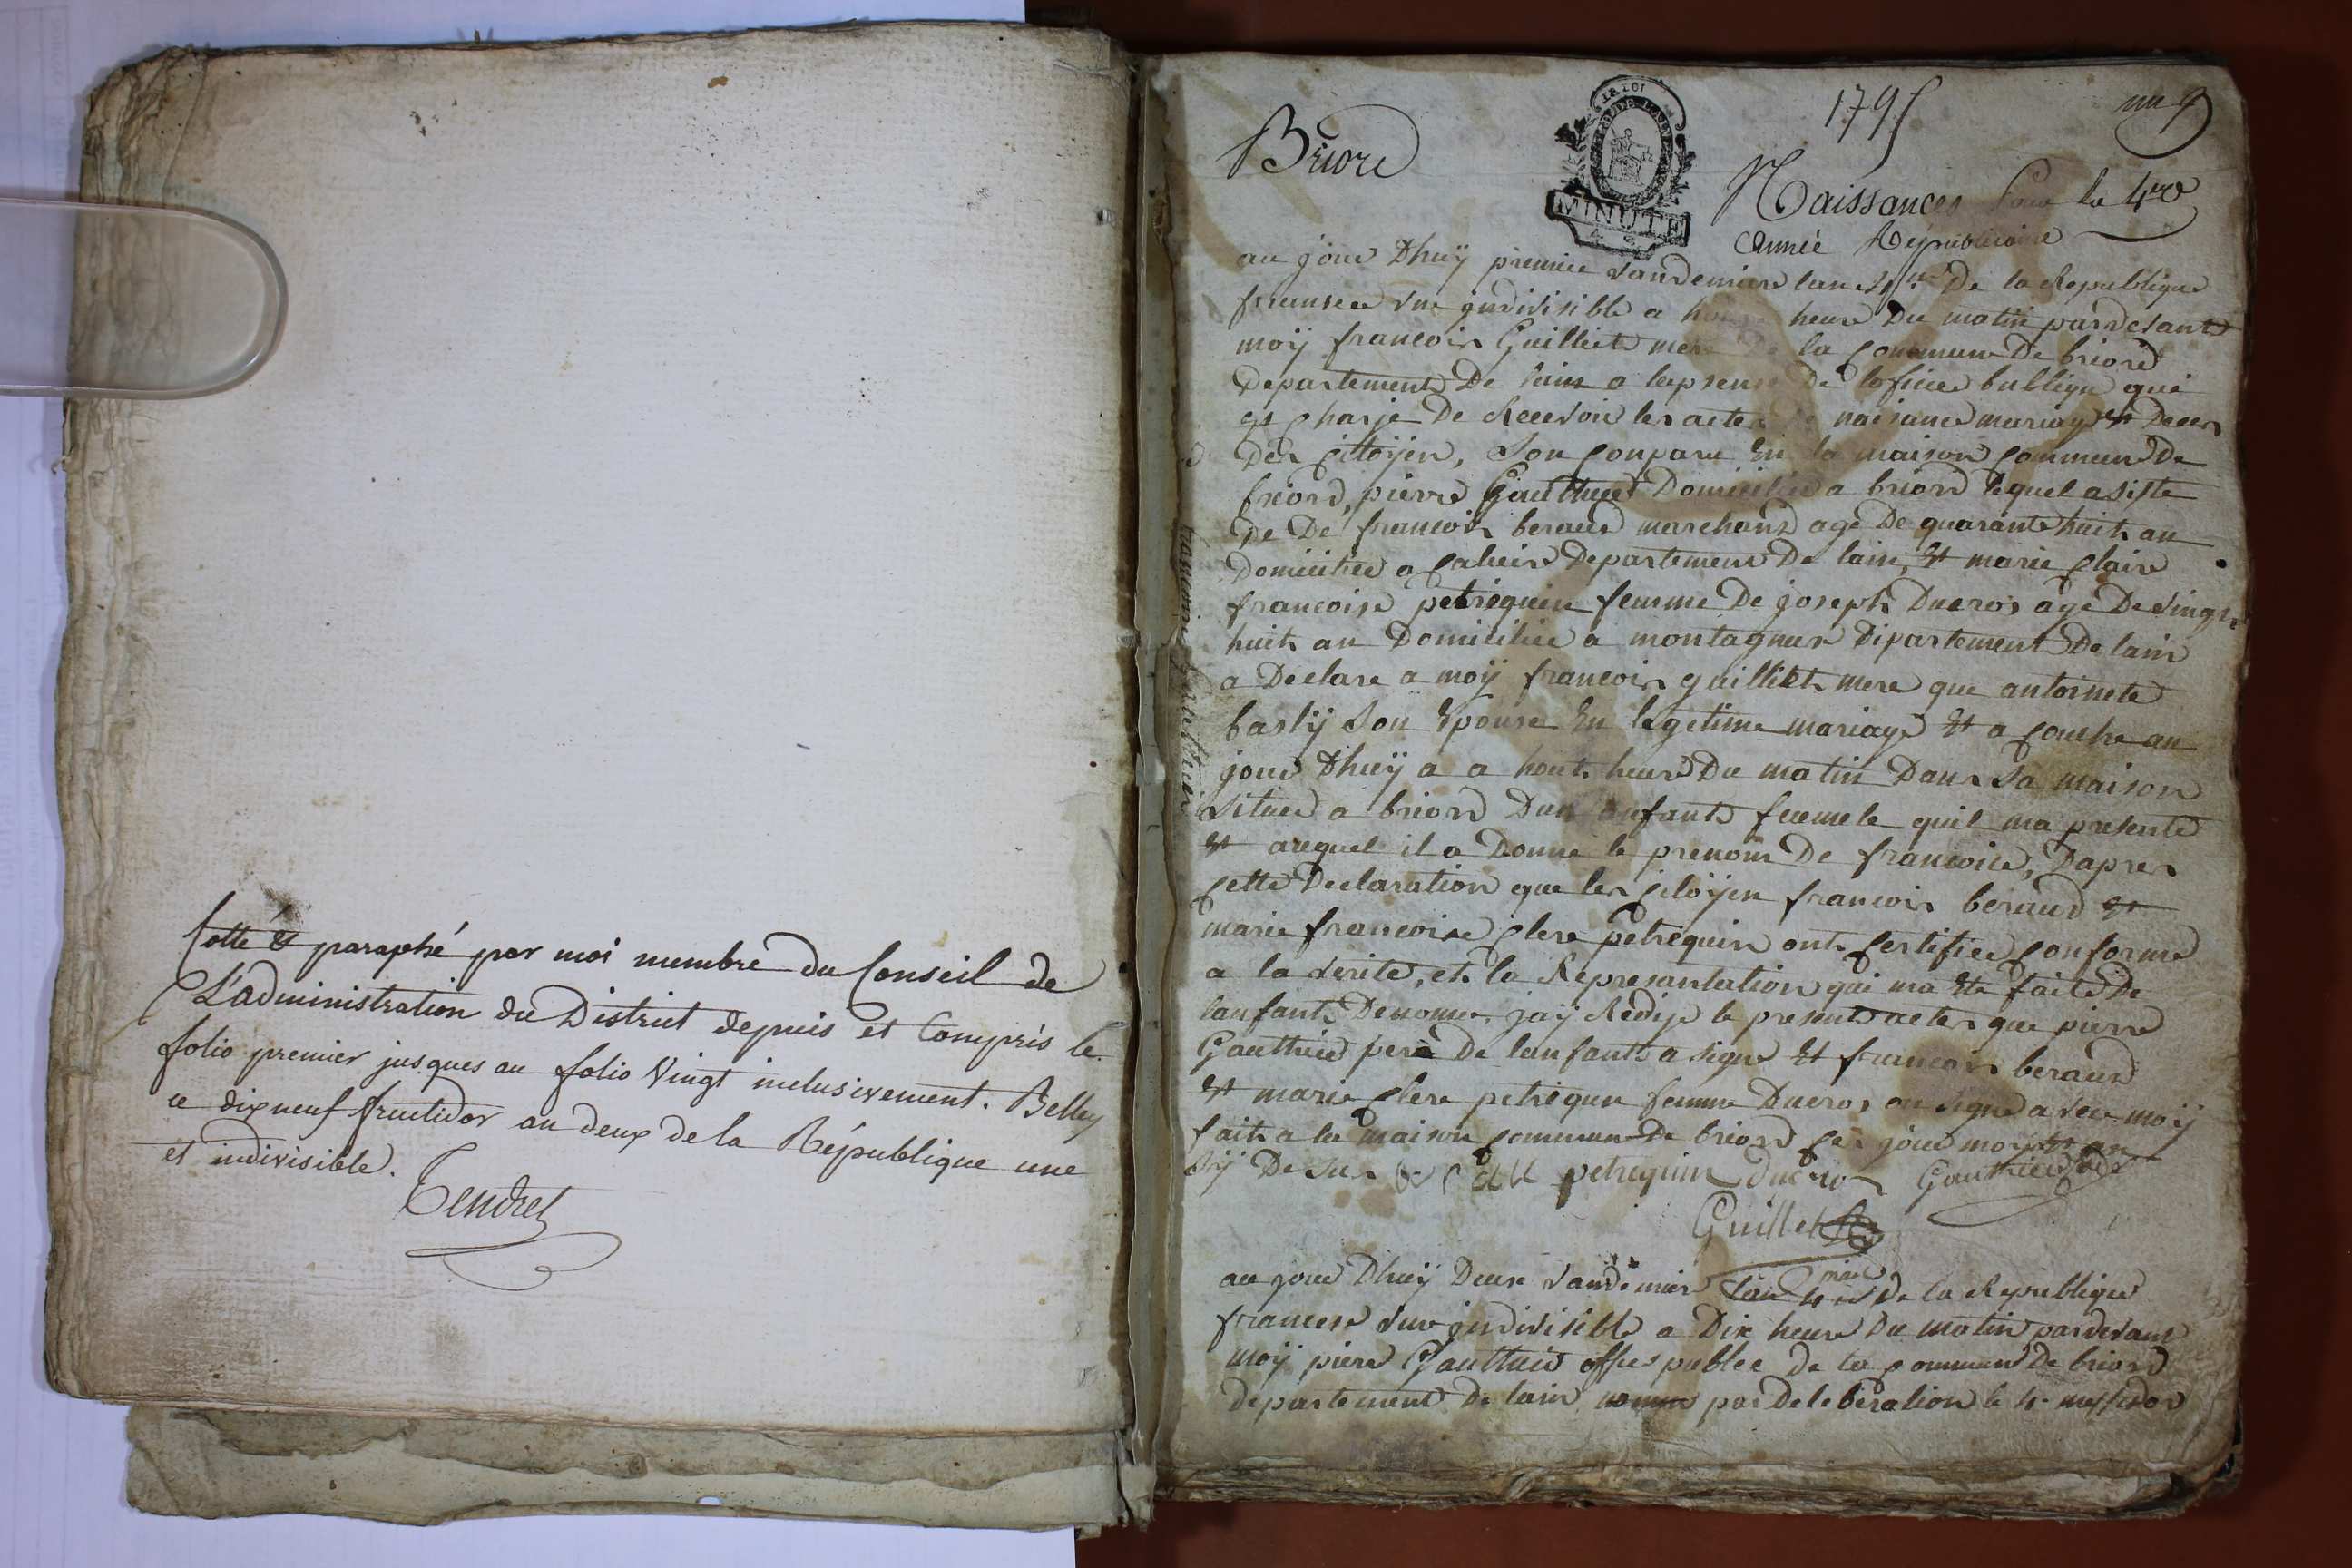 Cotté & paraphé par moi membre du Conseil de
L'administration du District depuis et Compris le
folio premier jusques au folio Vingt inclusivement. Belley
ce dixneuf fructidor an deux de la République une
et indivisible.
Tendret
1795
Briord
LA LOI
MINUTE
Naissances Pour la 4me
Année Républicaine
au jour Dhuÿ premier vandemiare lan 4me De la Republique
franse une indivisible a heure Du matin pardevant
moÿ francois Guilliet mere De la Commune De briord
Departement De lain a De lofficie bublique qui
est Charje De Recevoir les actes De naisance mariage et Deces
Des Citoÿen, Son Conparu En la maison Commune De
briord, pierre Gauthier Domicilie a briord lequel asiste
De De francois beraud marchand age De quarante huit an
Domicilie a Departement De lain, Et marie Claire
francoise petrequin femme De joseph Ducros age De vingt
huit an Domicilie a montagneu Dipartement De lain
a Declare a moÿ francois guilliet mere que antoinete
basty Son Epouse En legetime mariage Et a Couche au
jour Dhuÿ a a heure Du matin Dans Sa maison
Situee a briord Dun enfant femele quil ma presente
Et auquel il a Donne le prenom De francoise, Dapres
Cette Declaration que les Citoÿen francois beraud Et
marie francoise Clere petrequin ont Certifiee Conforme
a la verite, et la Represantation qui ma Ete faite De
lanfant Denomme, jaÿ Redije le present actes que pierre
Gauthier pere De lanfant a signe Et francois beraud
Et marie Clere petrequin femme Ducros on signe avec moÿ
fait a la maison Commune De briord Ces jour mois Et an
Sÿ Desus petrequin ducros Gauthier
Guillet
au jour Dhuÿ Deuse vandemier lan 4me De la Republique
francese une indivisible a Dix heure Du matin pardevant
moÿ piere Gauthier offise publee De la Commune De briord
departement De lain nomme par Deleberation le 4 messidor